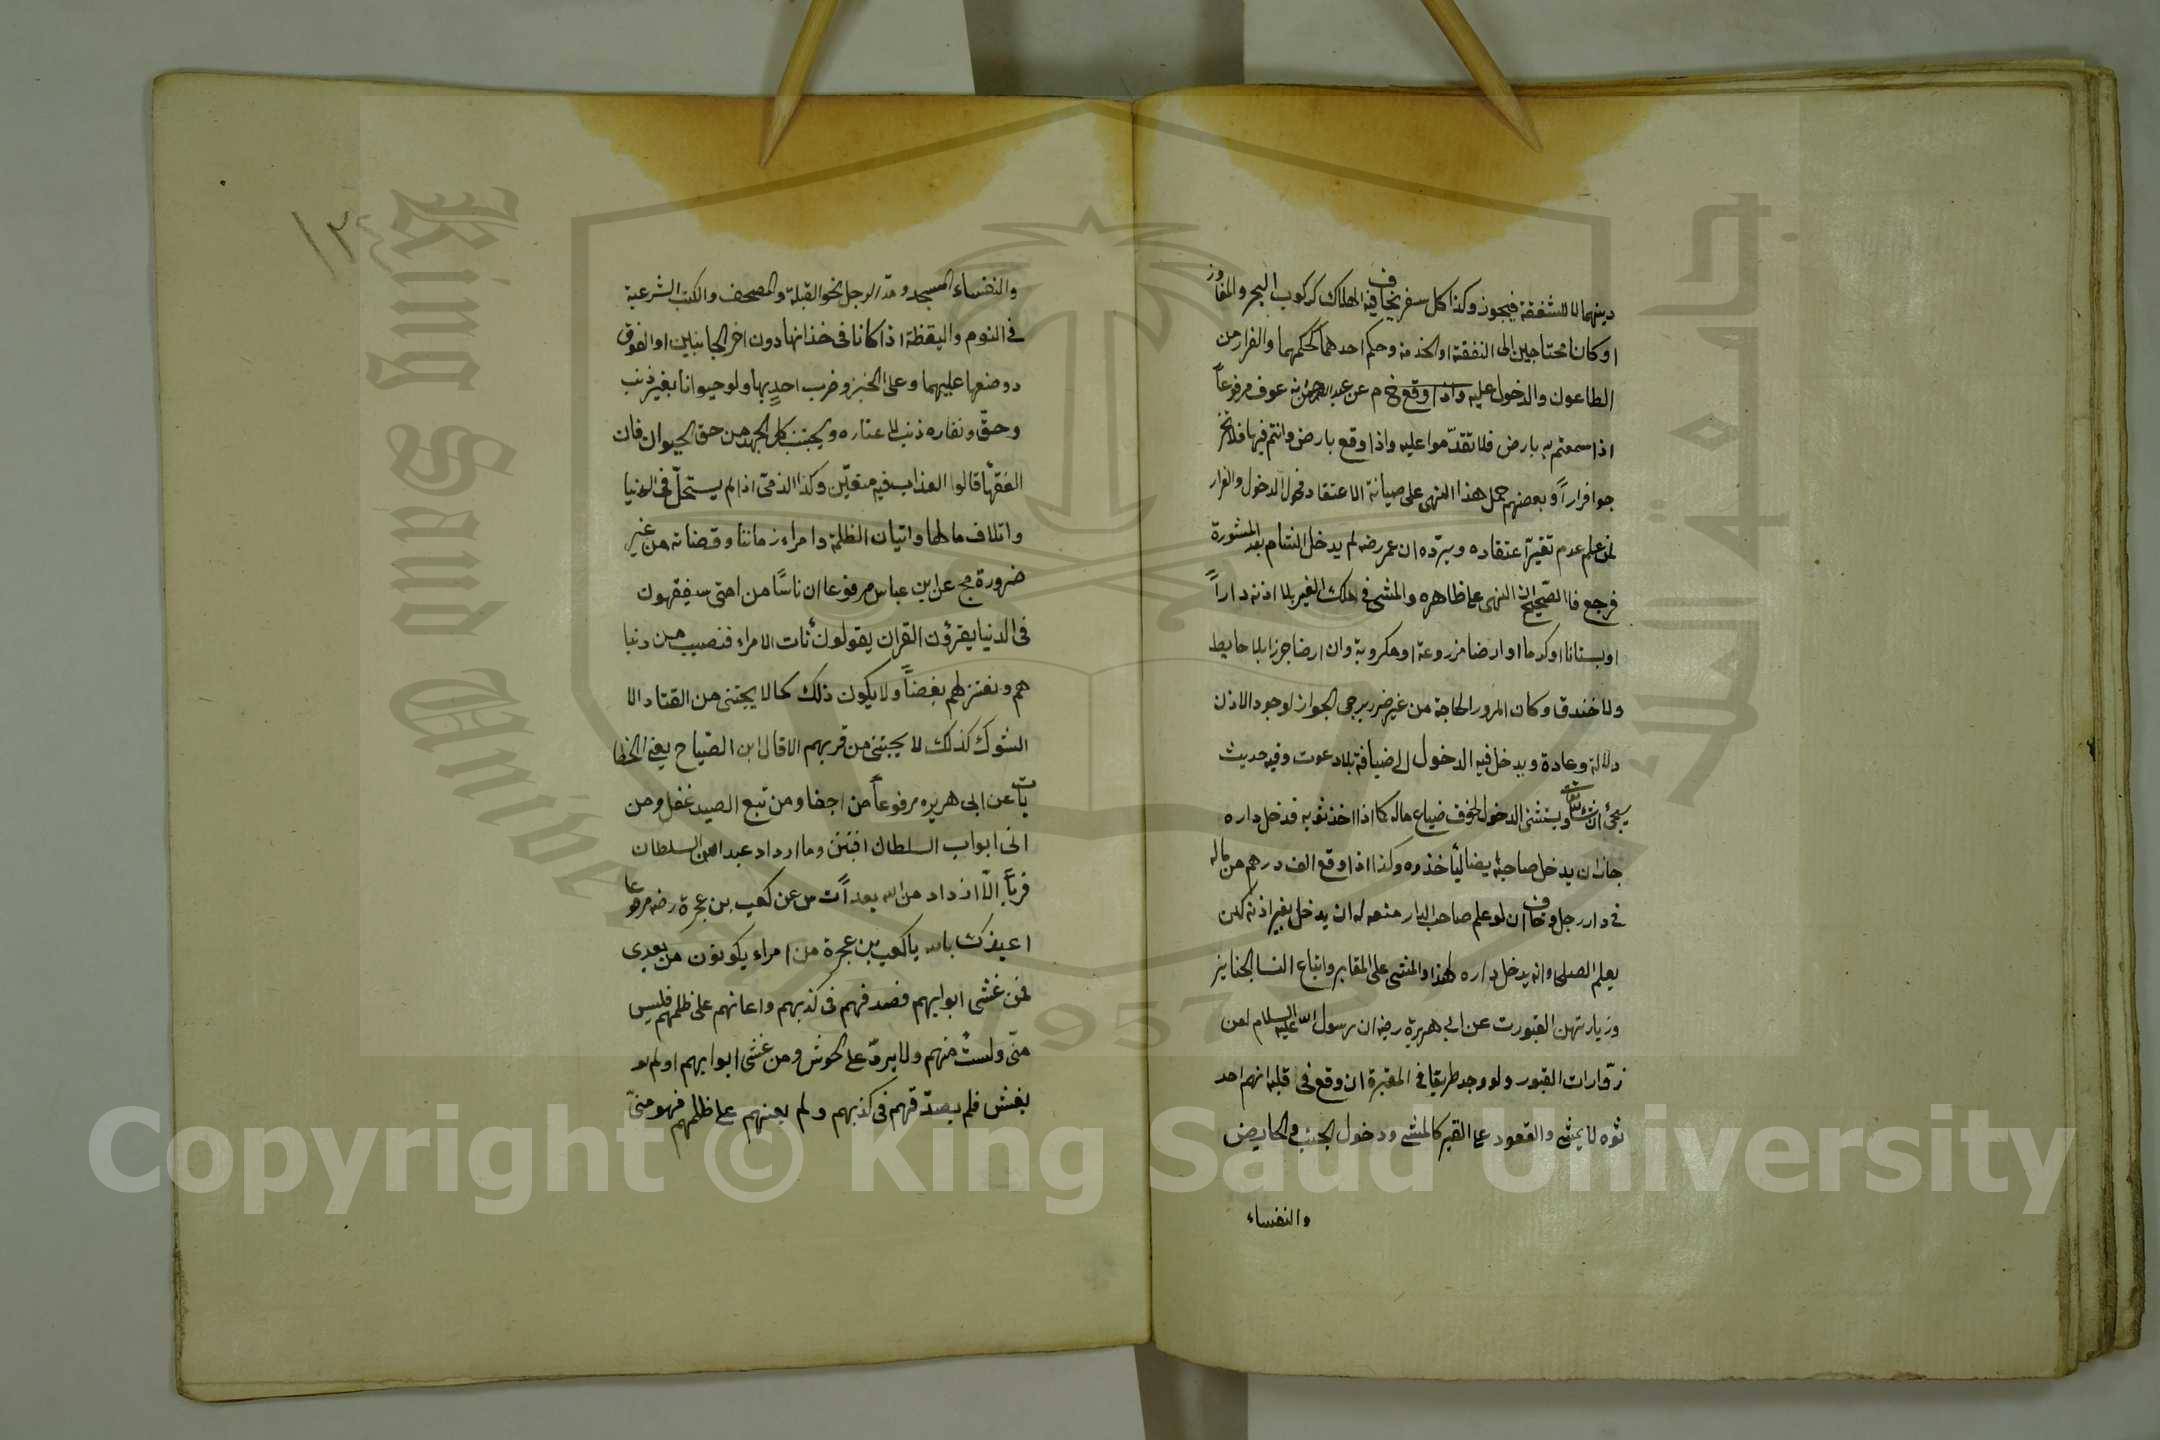 دينهما لا للشفقة فيجوز وكذا كل سفر يخاف فيه الهلاك كركوب البحر والمفاوز
او كانا محتاجين الى النفقة او الخدمة وحكم احدهما كحكمهما والفرار من
الطاعون والدخول عليه واذا وقع خ م عن عبد الرحمن بن عوف مرفوعاً
اذا سمعتم به بارض فلا تقدموا عليه واذا وقع بارض وانتم فيها فلا تخر
جوا فراراً وبعضهم حمل هذا النهى على صيانة الاعتقاد فجوز الدخول والفرار
لمن علم عدم تغير اعتقاده ويردّه ان عمر رضه لم يدخل الشام بعد المشورة
فرجع فا الصحيح ان النهى على ظاهره والمشى فى ملك الغير بلا اذنه داراً
او بستانا او كرما او ارضا مزروعة او مكروبة وان ارضا جرزا بلا حايط
ولا خندق وكان المرور لحاجة من غير ضرر يرجى الجواز لوجود الاذن
دلالة وعادة ويدخل فيه الدخول الى ضيافة بلا دعوت وفيه حديث
سيجئ ان شاء الله تعالى ويستثنى الدخول لخوف ضياع ماله كما اذا اخذ ثوبه فدخل داره
جاز ان يدخل صاحبه ايضا ليأخذه وكذا اذا وقع الف درهم من ماله
فى دار رجل وخاف ان لو علم صاحب الدار منعه له ان يدخل بغير اذنه لكن
يعلم الصلحاء انه يدخل داره لهذا والمشى على المقابر واتباع النسا الجنايز
وزيارتهن القبور ت عن ابى هريرة رضه ان رسول الله عليه السلام لعن
زوّارات القبور ولو وجد طريقا فى المقبرة ان وقع فى قلبه انهم احد
ثوه لا يمشى والقعود على القبر كالمشى ودخول الجنب والحايض
والنفساء
١٣٤
والنفساء المسجد ومدّ الرجل نحو القبلة والمصحف والكتب الشرعية
فى النوم واليقظة اذا كانا فى حذائها دون اخر الجانبين او الفوق
دوضعها عليهما وعلى الخبز وضرب احدٍ بها ولو حيوانا بغير ذنب
وحقّ ونفاره ذنب لا عثاره ويجتنب كل الجهد من حق الحيوان فان
الفقها قالوا العذاب فيه متعيّن وكذا الذمّى اذا لم يستحلّ فى الدنيا
واتلاف مالها واتيان الظلمة وامراء زماننا وقضاته من غير
ضرورة مج عن ابن عباس مرفوعا ان ناسًا من امتى سيفقهون
فى الدنيا يقرؤن القران يقولون نأت الامراء فنصيب من دنيا
هم ونعتزلهم بغضاً ولا يكون ذلك كما لا يجتنى من القتاد الا
الشوك كذلك لا يجتنى من قربهم الا قال ابن الصّباح يعنى الخطا
يات عن ابى هريره مرفوعاً من اجفا ومن تبع الصيد غفل ومن
اتى ابواب السلطان افتتن وما ازداد عبد من السلطان
قرباً الاّ ازداد من الله بعداً ت س عن كعب بن عجرة رضه مرفوعا
اعيذك بالله ياكعب بن عجرة من امراء يكونون من بعدى
فمن غشى ابوابهم فصدقهم فى كذبهم واعانهم على ظلمهم فليس
منّى ولستُ منهم ولا يردّ على الحوض ومن غشى ابوابهم او لم
يغش فلم يصدّقهم فى كذبهم ولم يعنهم على ظلمهم فهو منّى
King Saud Univer
جامعة الملك
1957
Copyright © King Saud University